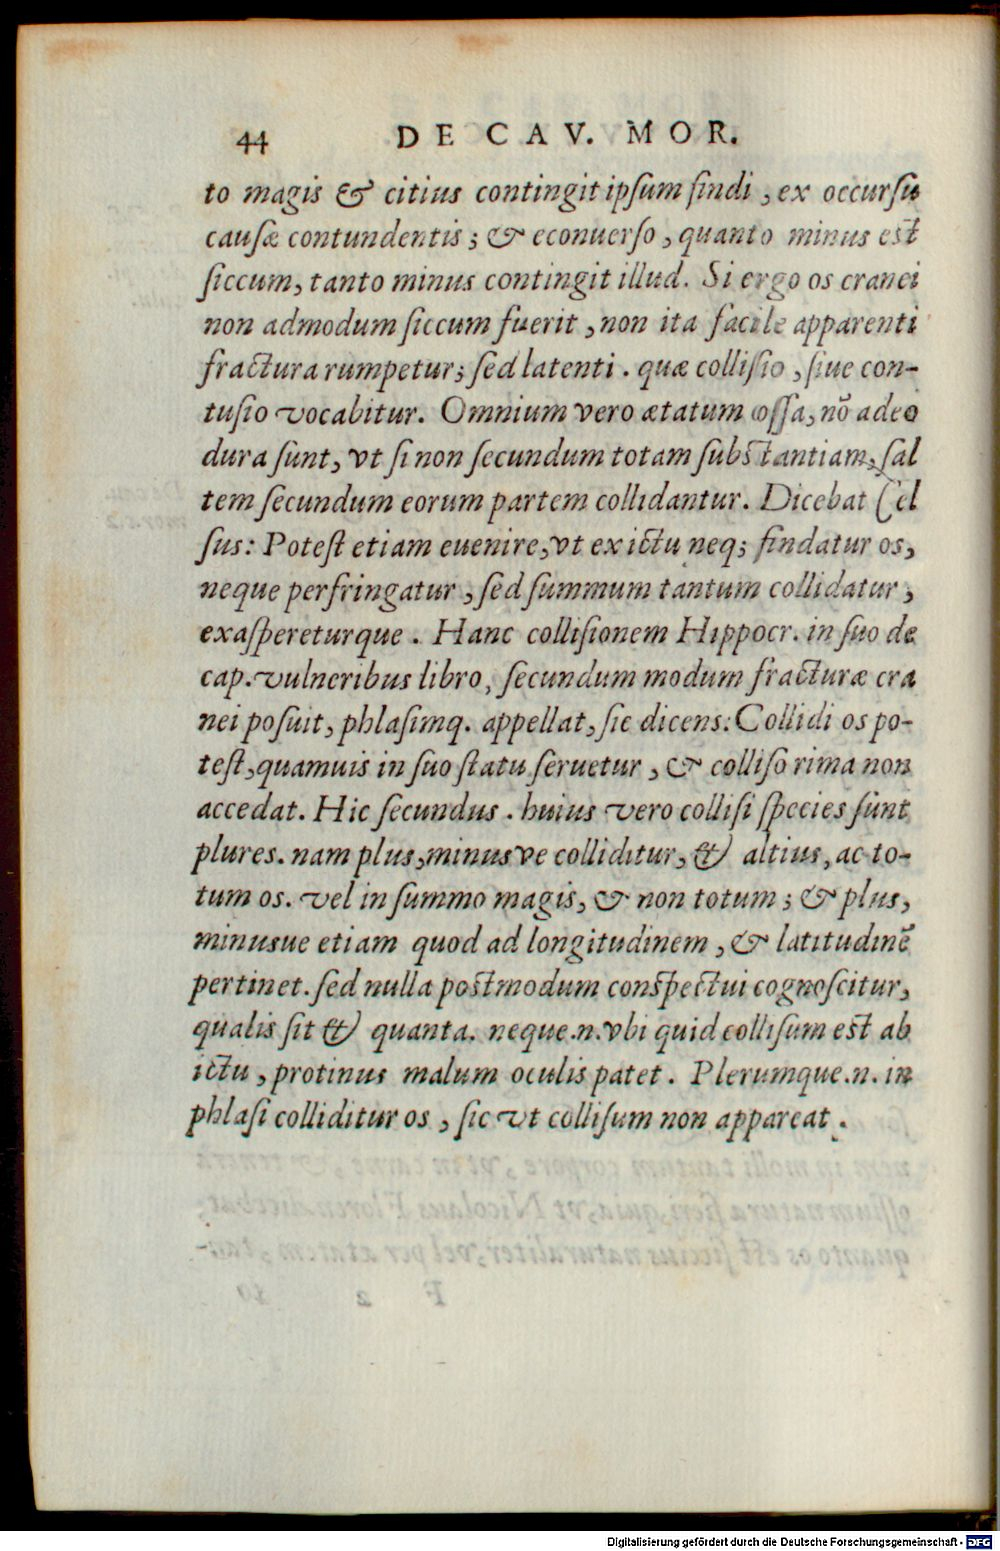 44 DE CAV. MOR.
to magis & citius contingit ipſum findi, ex occurſu
cauſæ contundentis; & econuerſo, quanto minus eſt
ſiccum, tanto minus contingit illud. Si ergo os cranei
non admodum ſiccum fuerit, non ita facile apparenti
fractura rumpetur; ſed latenti. quæ colliſio, ſiue con-
tuſio vocabitur. Omnium vero ætatum oſſa, nō adeo
dura ſunt, vt ſi non ſecundum totam ſubſtantiam, ſal
tem ſecundum eorum partem collidantur. Dicebat Cel
ſus: Poteſt etiam euenire, vt ex ictu neq; findatur os,
neque perfringatur, ſed ſummum tantum collidatur,
exaſpereturque. Hanc colliſionem Hippocr. in ſuo de
cap. vulneribus libro, ſecundum modum fracturæ cra
nei poſuit, phlaſimq. appellat, ſic dicens: Collidi os po-
teſt, quamuis in ſuo ſtatu ſeruetur, & colliſo rima non
accedat. Hic ſecundus. huius vero colliſi ſpecies ſunt
plures. nam plus, minusve colliditur, & altius, ac to-
tum os. vel in ſummo magis, & non totum; & plus,
minusue etiam quod ad longitudinem, & latitudinē
pertinet. ſed nulla poſtmodum conſpectui cognoſcitur,
qualis ſit & quanta. neque .n. vbi quid colliſum eſt ab
ictu, protinus malum oculis patet. Plerumque .n. in
phlaſi colliditur os, ſic vt colliſum non appareat.
Digitalisierung gefördert durch die Deutsche Forschungsgemeinschaft - DFG